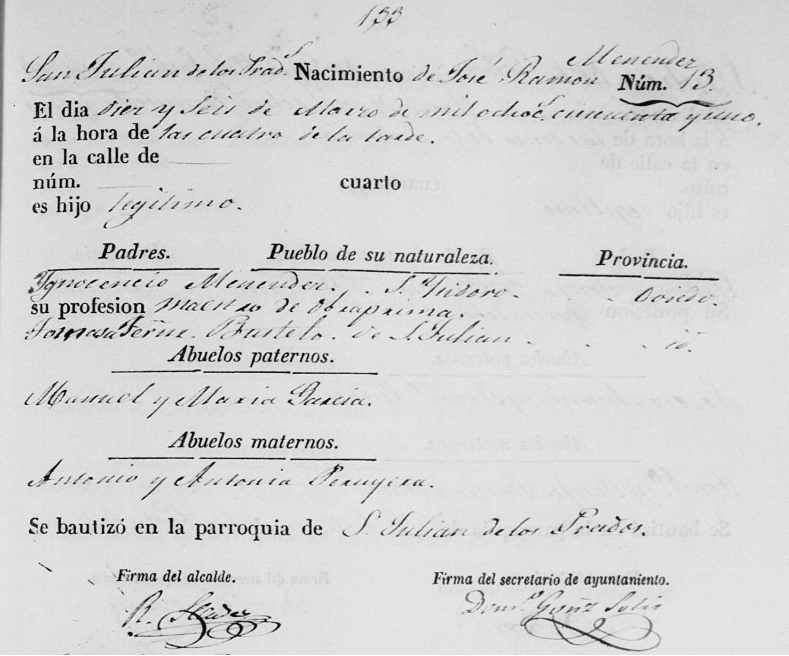 133
San Julian de los Prad.s Nacimiento de José Ramon Menendez Núm. 13.
El dia diez y seis de Marzo de mil ochoc. cincuenta y uno.
á la hora de las cuatro de la tarde.
en la calle de
núm. cuarto
es hijo legitimo.
Padres. Pueblo de su naturaleza. Provincia.
Ygnocencio Menendez. S. Ysidoro. Oviedo.
su profesion maestro de obra prima.
Tomasa Fernz. de S. Julian id.
Abuelos paternos.
Manuel y Maria Garcia.
Abuelos maternos.
Antonio y Antonia
Se bautizó en la parroquia de S. Julian de los Prados.
Firma del alcalde. Firma del secretario de ayuntamiento.
R. Solis